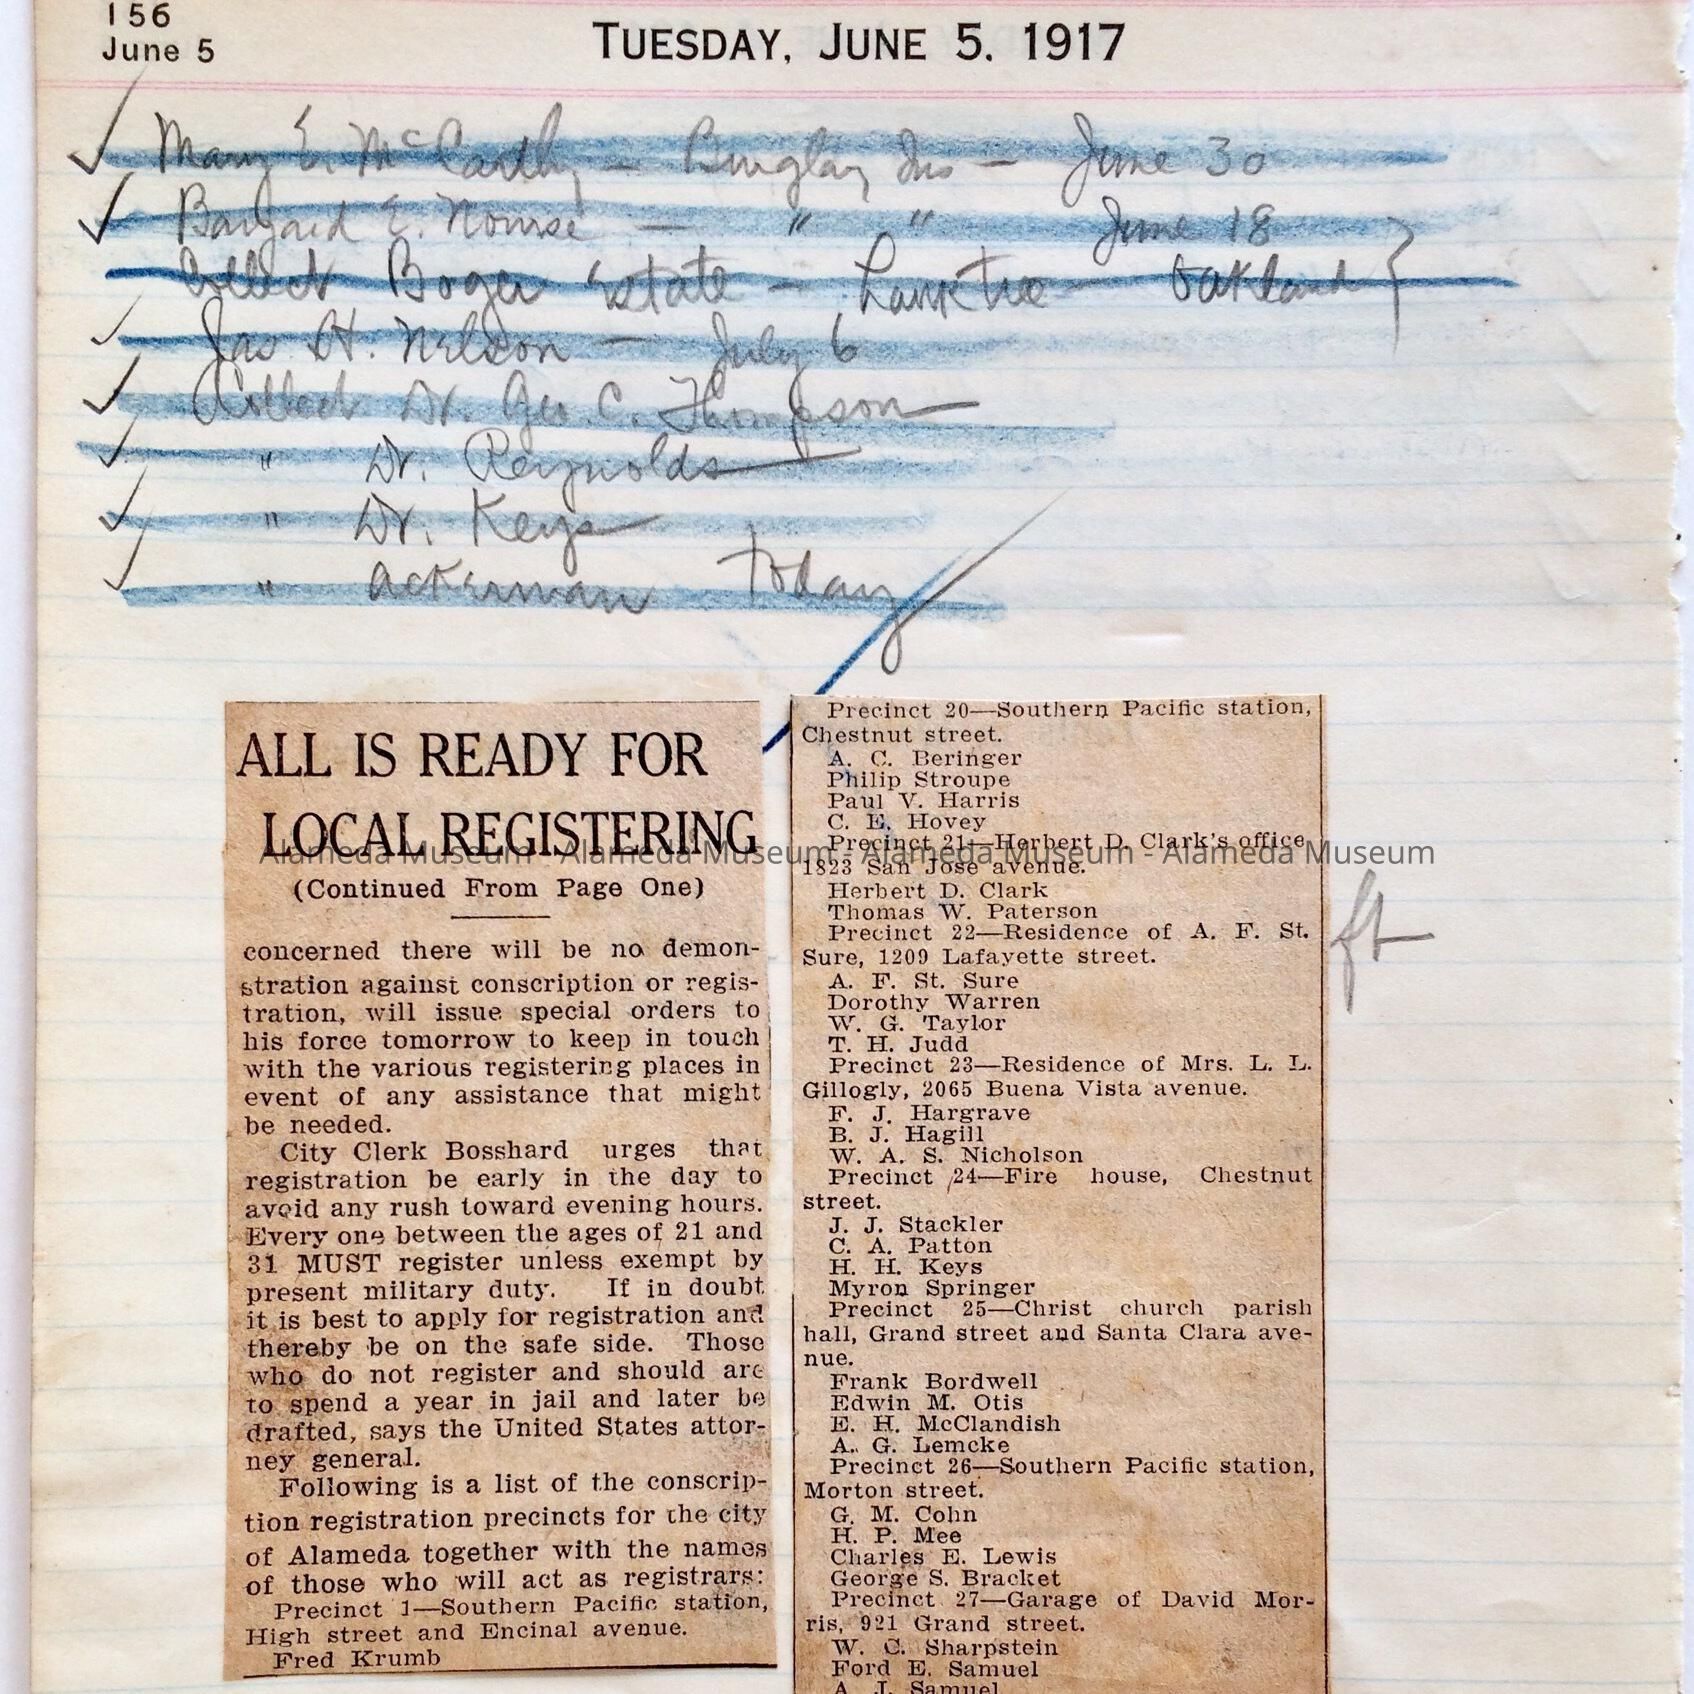 156
June 5
TUESDAY, JUNE 5. 1917
Mary E. McCarthy — Burglary Ins — June 30
Bayard E. Nourse — " " June 18
Collect Boger Estate — Lanktree — Oakland }
Jas H. Nelson — July 6
Collect Dr. Geo C. Thompson
" Dr. Reynolds
" Dr. Keys
" Ackerman Today
ALL IS READY FOR
LOCAL REGISTERING
(Continued From Page One)
concerned there will be no demon-
stration against conscription or regis-
tration, will issue special orders to
his force tomorrow to keep in touch
with the various registering places in
event of any assistance that might
be needed.
City Clerk Bosshard urges that
registration be early in the day to
avoid any rush toward evening hours.
Every one between the ages of 21 and
31 MUST register unless exempt by
present military duty. If in doubt
it is best to apply for registration and
thereby be on the safe side. Those
who do not register and should are
to spend a year in jail and later be
drafted, says the United States attor-
ney general.
Following is a list of the conscrip-
tion registration precincts for the city
of Alameda together with the names
of those who will act as registrars:
Precinct 1—Southern Pacific station,
High street and Encinal avenue.
Fred Krumb
Precinct 20—Southern Pacific station,
Chestnut street.
A. C. Beringer
Philip Stroupe
Paul V. Harris
C. E. Hovey
Precinct 21—Herbert D. Clark's office,
1823 San Jose avenue.
Herbert D. Clark
Thomas W. Paterson
Precinct 22—Residence of A. F. St.
Sure, 1209 Lafayette street.
A. F. St. Sure
Dorothy Warren
W. G. Taylor
T. H. Judd
Precinct 23—Residence of Mrs. L. L.
Gillogly, 2065 Buena Vista avenue.
F. J. Hargrave
B. J. Hagill
W. A. S. Nicholson
Precinct 24—Fire house, Chestnut
street.
J. J. Stackler
C. A. Patton
H. H. Keys
Myron Springer
Precinct 25—Christ church parish
hall, Grand street and Santa Clara ave-
nue.
Frank Bordwell
Edwin M. Otis
E. H. McClandish
A. G. Lemcke
Precinct 26—Southern Pacific station,
Morton street.
G. M. Cohn
H. P. Mee
Charles E. Lewis
George S. Bracket
Precinct 27—Garage of David Mor-
ris, 921 Grand street.
W. C. Sharpstein
Ford E. Samuel
A. J. Samuel
Alameda Museum - Alameda Museum - Alameda Museum - Alameda Museum